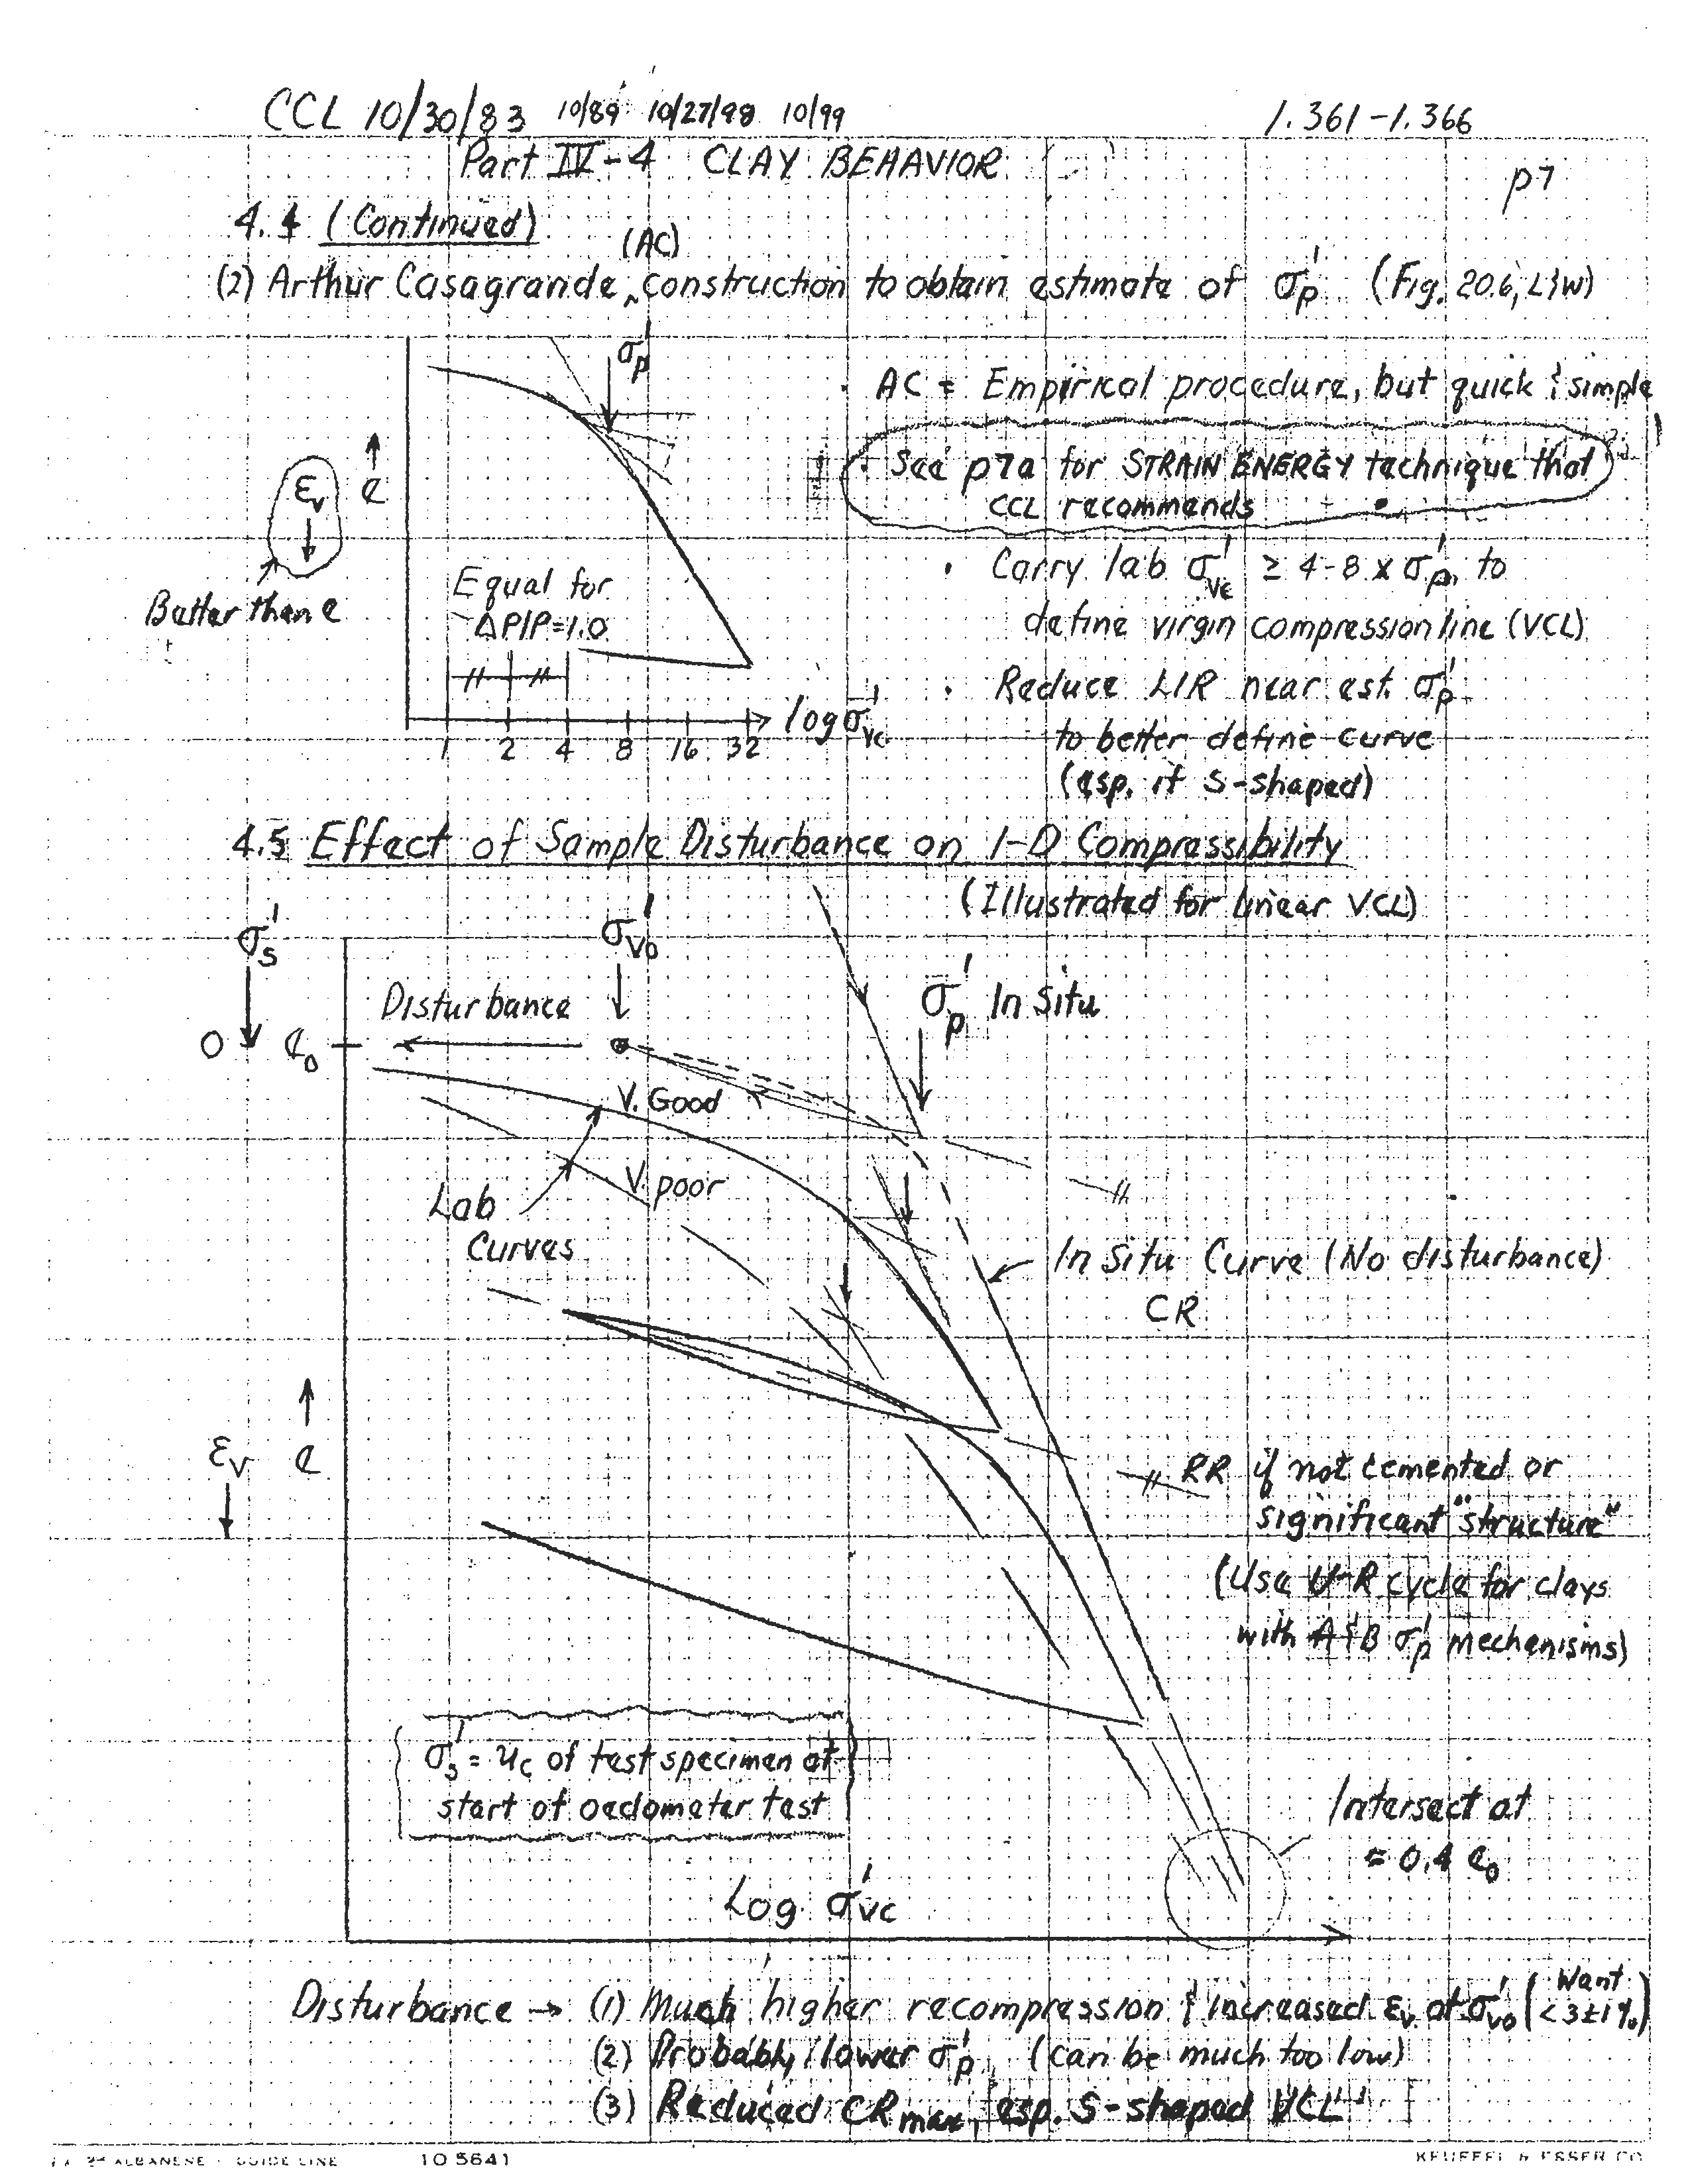 CCL 10/30/83 10/89 10/27/98 10/99 1.361-1.366
Part IV-4 CLAY BEHAVIOR
p7
4.4 (Continued)
(AC)
(2) Arthur Casagrande, construction to obtain estimate of σ'p (Fig. 20.6, L&W)
σ'p
• AC = Empirical procedure, but quick & simple
• See p7a for STRAIN ENERGY technique that
CCL recommends
εv e
Better than e
Equal for
ΔP/P=1.0
• Carry lab σ'vc ≥ 4-8 x σ'p, to
define virgin compression line (VCL)
• Reduce LIR near est. σ'p
to better define curve
(esp. if S-shaped)
log σ'vc
1 2 4 8 16 32
4.5 Effect of Sample Disturbance on 1-D Compressibility
(Illustrated for linear VCL)
σ's
σ'vo
Disturbance
σ'p In Situ
0 e0
V. Good
V. poor
Lab
Curves
In Situ Curve (No disturbance)
CR
εv e
RR if not cemented or
significant "structure"
(Use U-R cycle for clays
with A&B σ'p mechanisms)
σ's = uc of test specimen at
start of oedometer test
Intersect at
≈ 0.4 e0
Log σ'vc
Disturbance → (1) Much higher recompression & increased εv at σ'vo (Want < 3±1%)
(2) Probably lower σ'p (can be much too low)
(3) Reduced CRmax, esp. S-shaped VCL
ALBANENE GUIDE LINE 10 5641 KEUFFEL & ESSER CO.